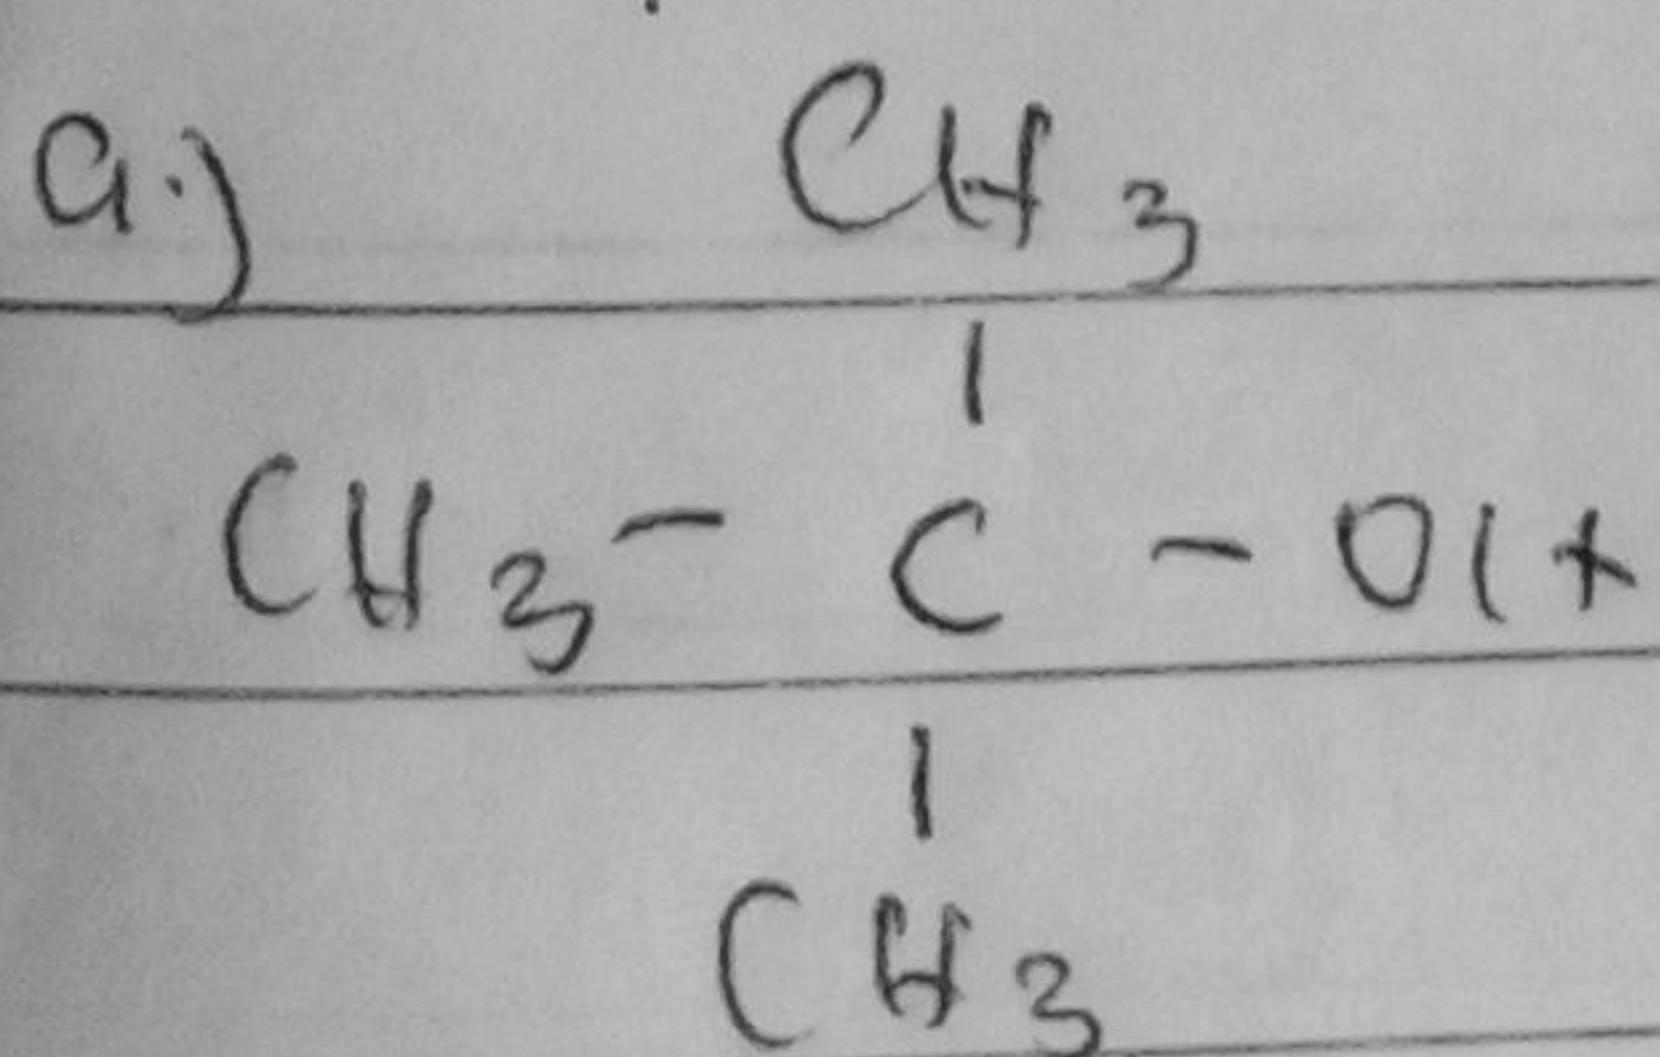 a.) CH3
|
CH3 - C - OH
|
CH3